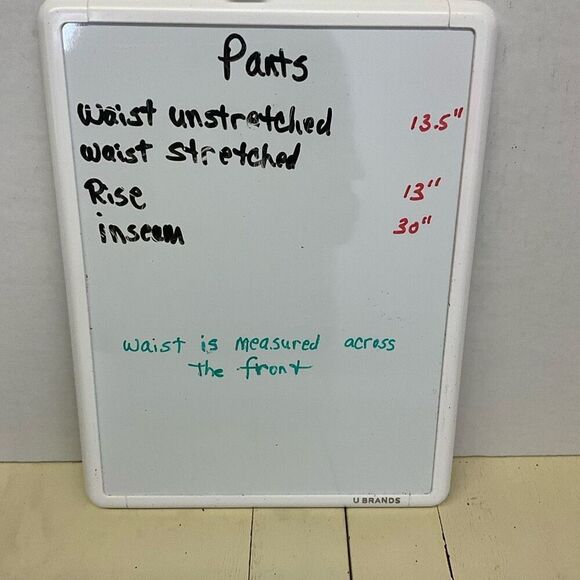 Pants
waist unstretched 13.5"
waist stretched
Rise 13"
inseam 30"
waist is measured across
the front
U BRANDS